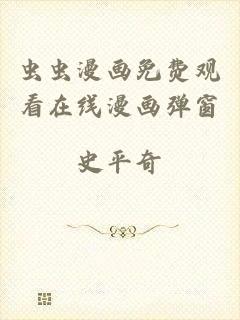 虫虫漫画免费观
看在线漫画弹窗
史平奇